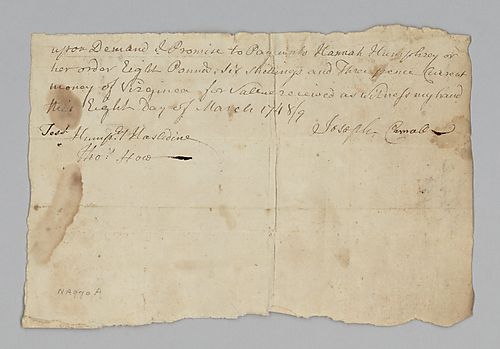 upon Demand I Promise to Pay unto Hannah Humphrey or
her order Eight Pounds Six Shillings and Three pence Curant
money of Virginea for Value received as witness my hand
this Eight Day of March 1748/9
Test Humphry Hasldine Joseph
Thos How